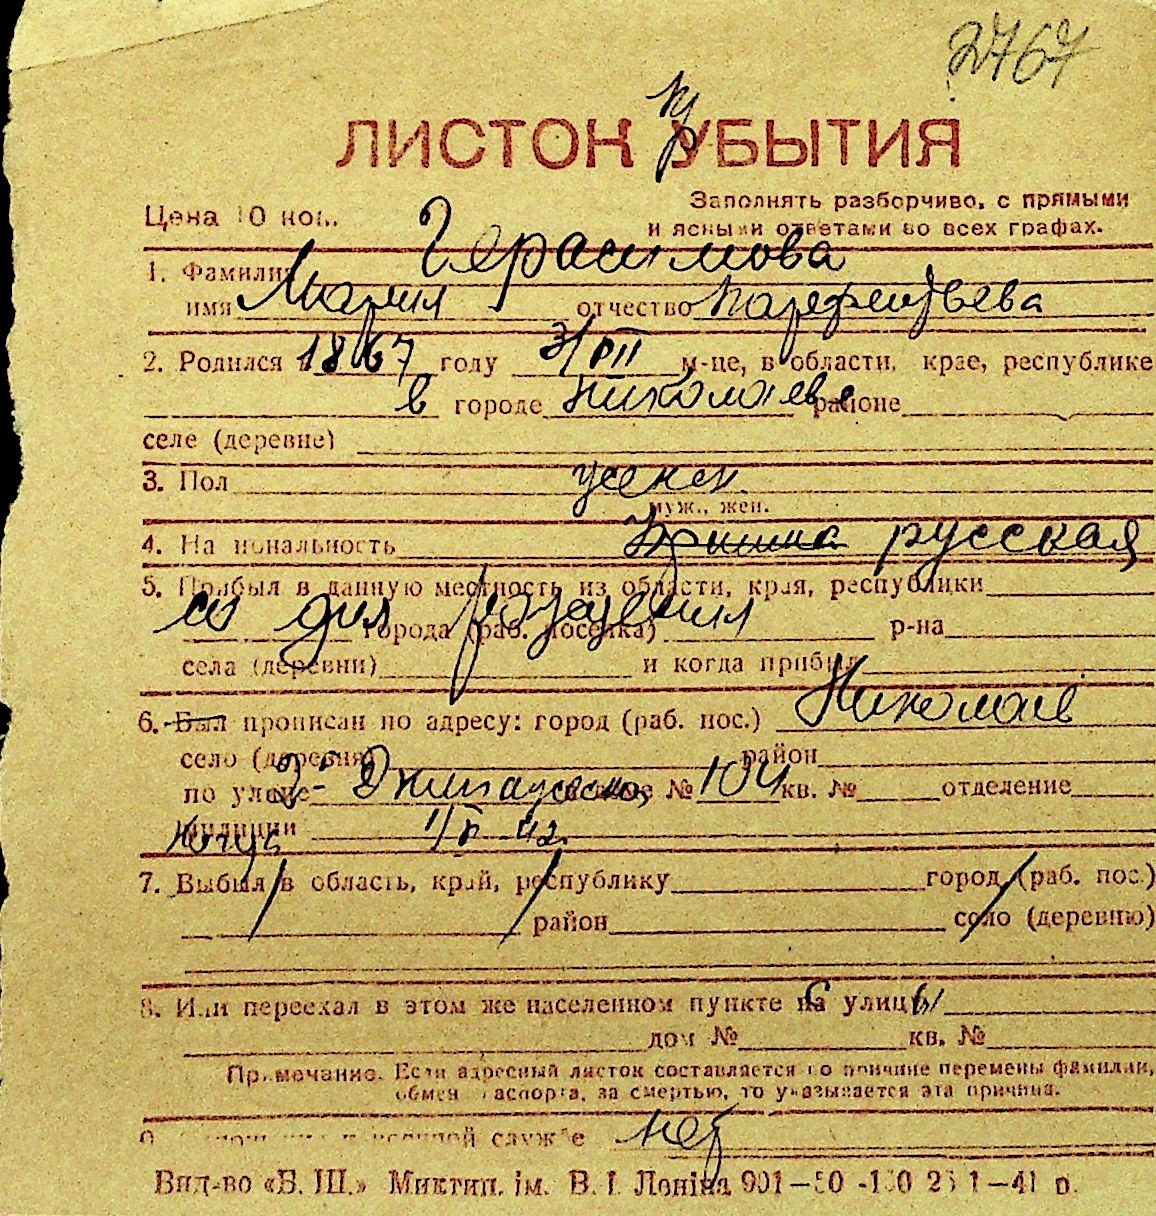 2767
ЛИСТОК пр УБЫТИЯ
Цена 10 коп.
Заполнять разборчиво, с прямыми
и ясными ответами во всех графах.
1. Фамилия Герасимова
имя Мария отчество Парфентьева
2. Родился в 1867 году 3/VII м-це, в области, крае, республике
в городе Николаеве районе
селе (деревне)
3. Пол женск.
муж., жен.
4. Национальность русская
5. Прибыл в данную местность из области, края, республики
со дня рождения города (раб. поселка) р-на
села (деревни) и когда прибыл
6. Был прописан по адресу: город (раб. пос.) Николаев
село (деревня) район
по улице 2 № 104 кв. № отделение
милиции 42.
7. Выбыл в область, край, республику город (раб. пос.)
район село (деревню)
8. Или переехал в этом же населенном пункте на с улицы
дом № кв. №
Примечание. Если адресный листок составляется по причине перемены фамилии,
обмен паспорта, за смертью, то указывается эта причина.
службе нет
Вид-во «Б. Ш.» Миктип. ім. В. І. Леніна 901—50